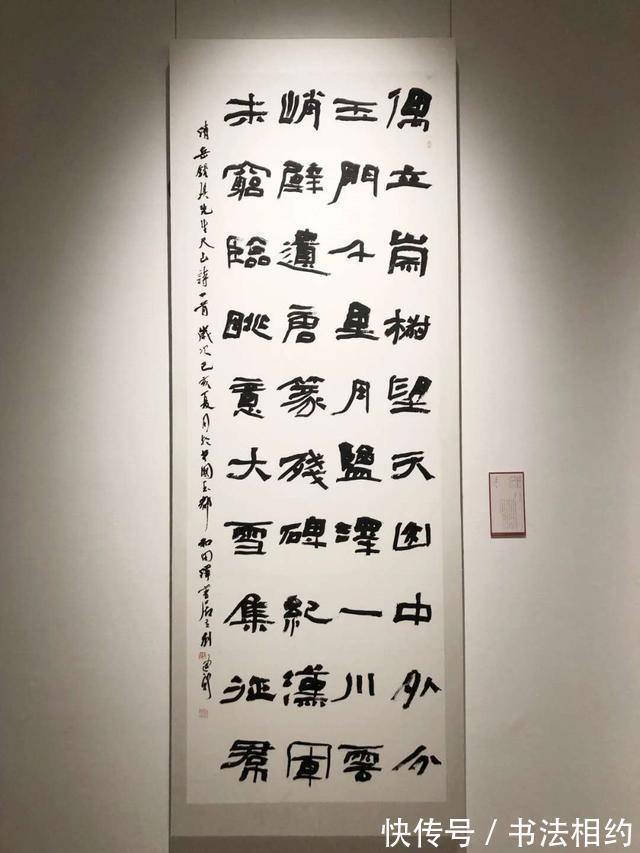 偶立崇樹望天山中外分
玉門千里月鹽澤一川雲
峭壁遺唐篆殘碑紀漢軍
未窮臨眺意大雪集征羣
清岳鍾琪先生天山詩一首 歲次己亥夏月於中國玉都和田
快传号 / 书法相约